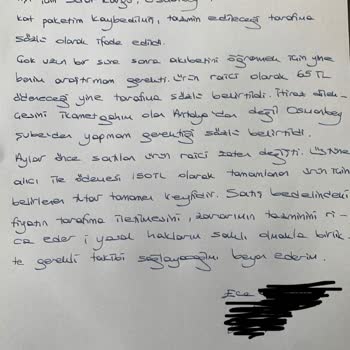 kat paketim kaybedilmiş, tazmin edileceği tarafıma
sözlü olarak ifade edildi.
Çok uzun bir süre sonra akıbetini öğrenmek için yine
benim araştırmam gerekti. Ürün raici olarak 65TL
ödeneceği yine tarafıma sözlü belirtildi. İtiraz dilek-
çesini ikametgahım olan Antalya'dan değil Osmanbey
şubeden yapmam gerektiği sözlü belirtildi.
Aylar önce satılan ürün raici zaten değişti. Üstüne
alıcı ile ödemesi 150TL olarak tamamlanan ürün için
belirlenen tutar tamamen keyfidir. Satış bedelindeki
fiyatın tarafıma iletilmesini, zararımın tazminini ri-
ca eder; yasal haklarım saklı olmakla birlik-
te gerekli takibi sağlayacağımı beyan ederim.
Ece